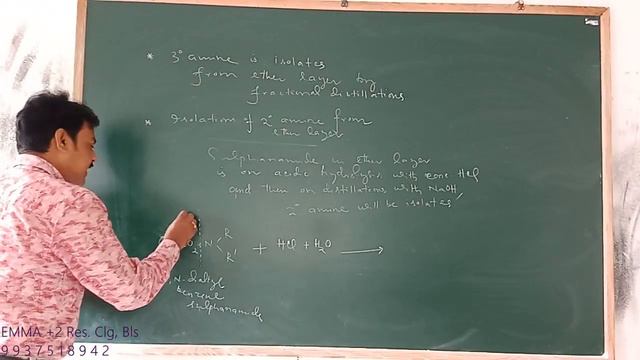 * 3° amine is isolates
from ether layer by
fractional distillations
* Isolation of 2° amine from
ether layer
Sulphanamide in ether layer
is on acidic hydrolysis with conc HCl
and then on distillations with NaOH,
2° amine will be isolates
O2 N R
R' + HCl + H2O →
N, N-dialkyl
benzene
sulphanamide
EMMA +2 Res. Clg, Bls
9937518942